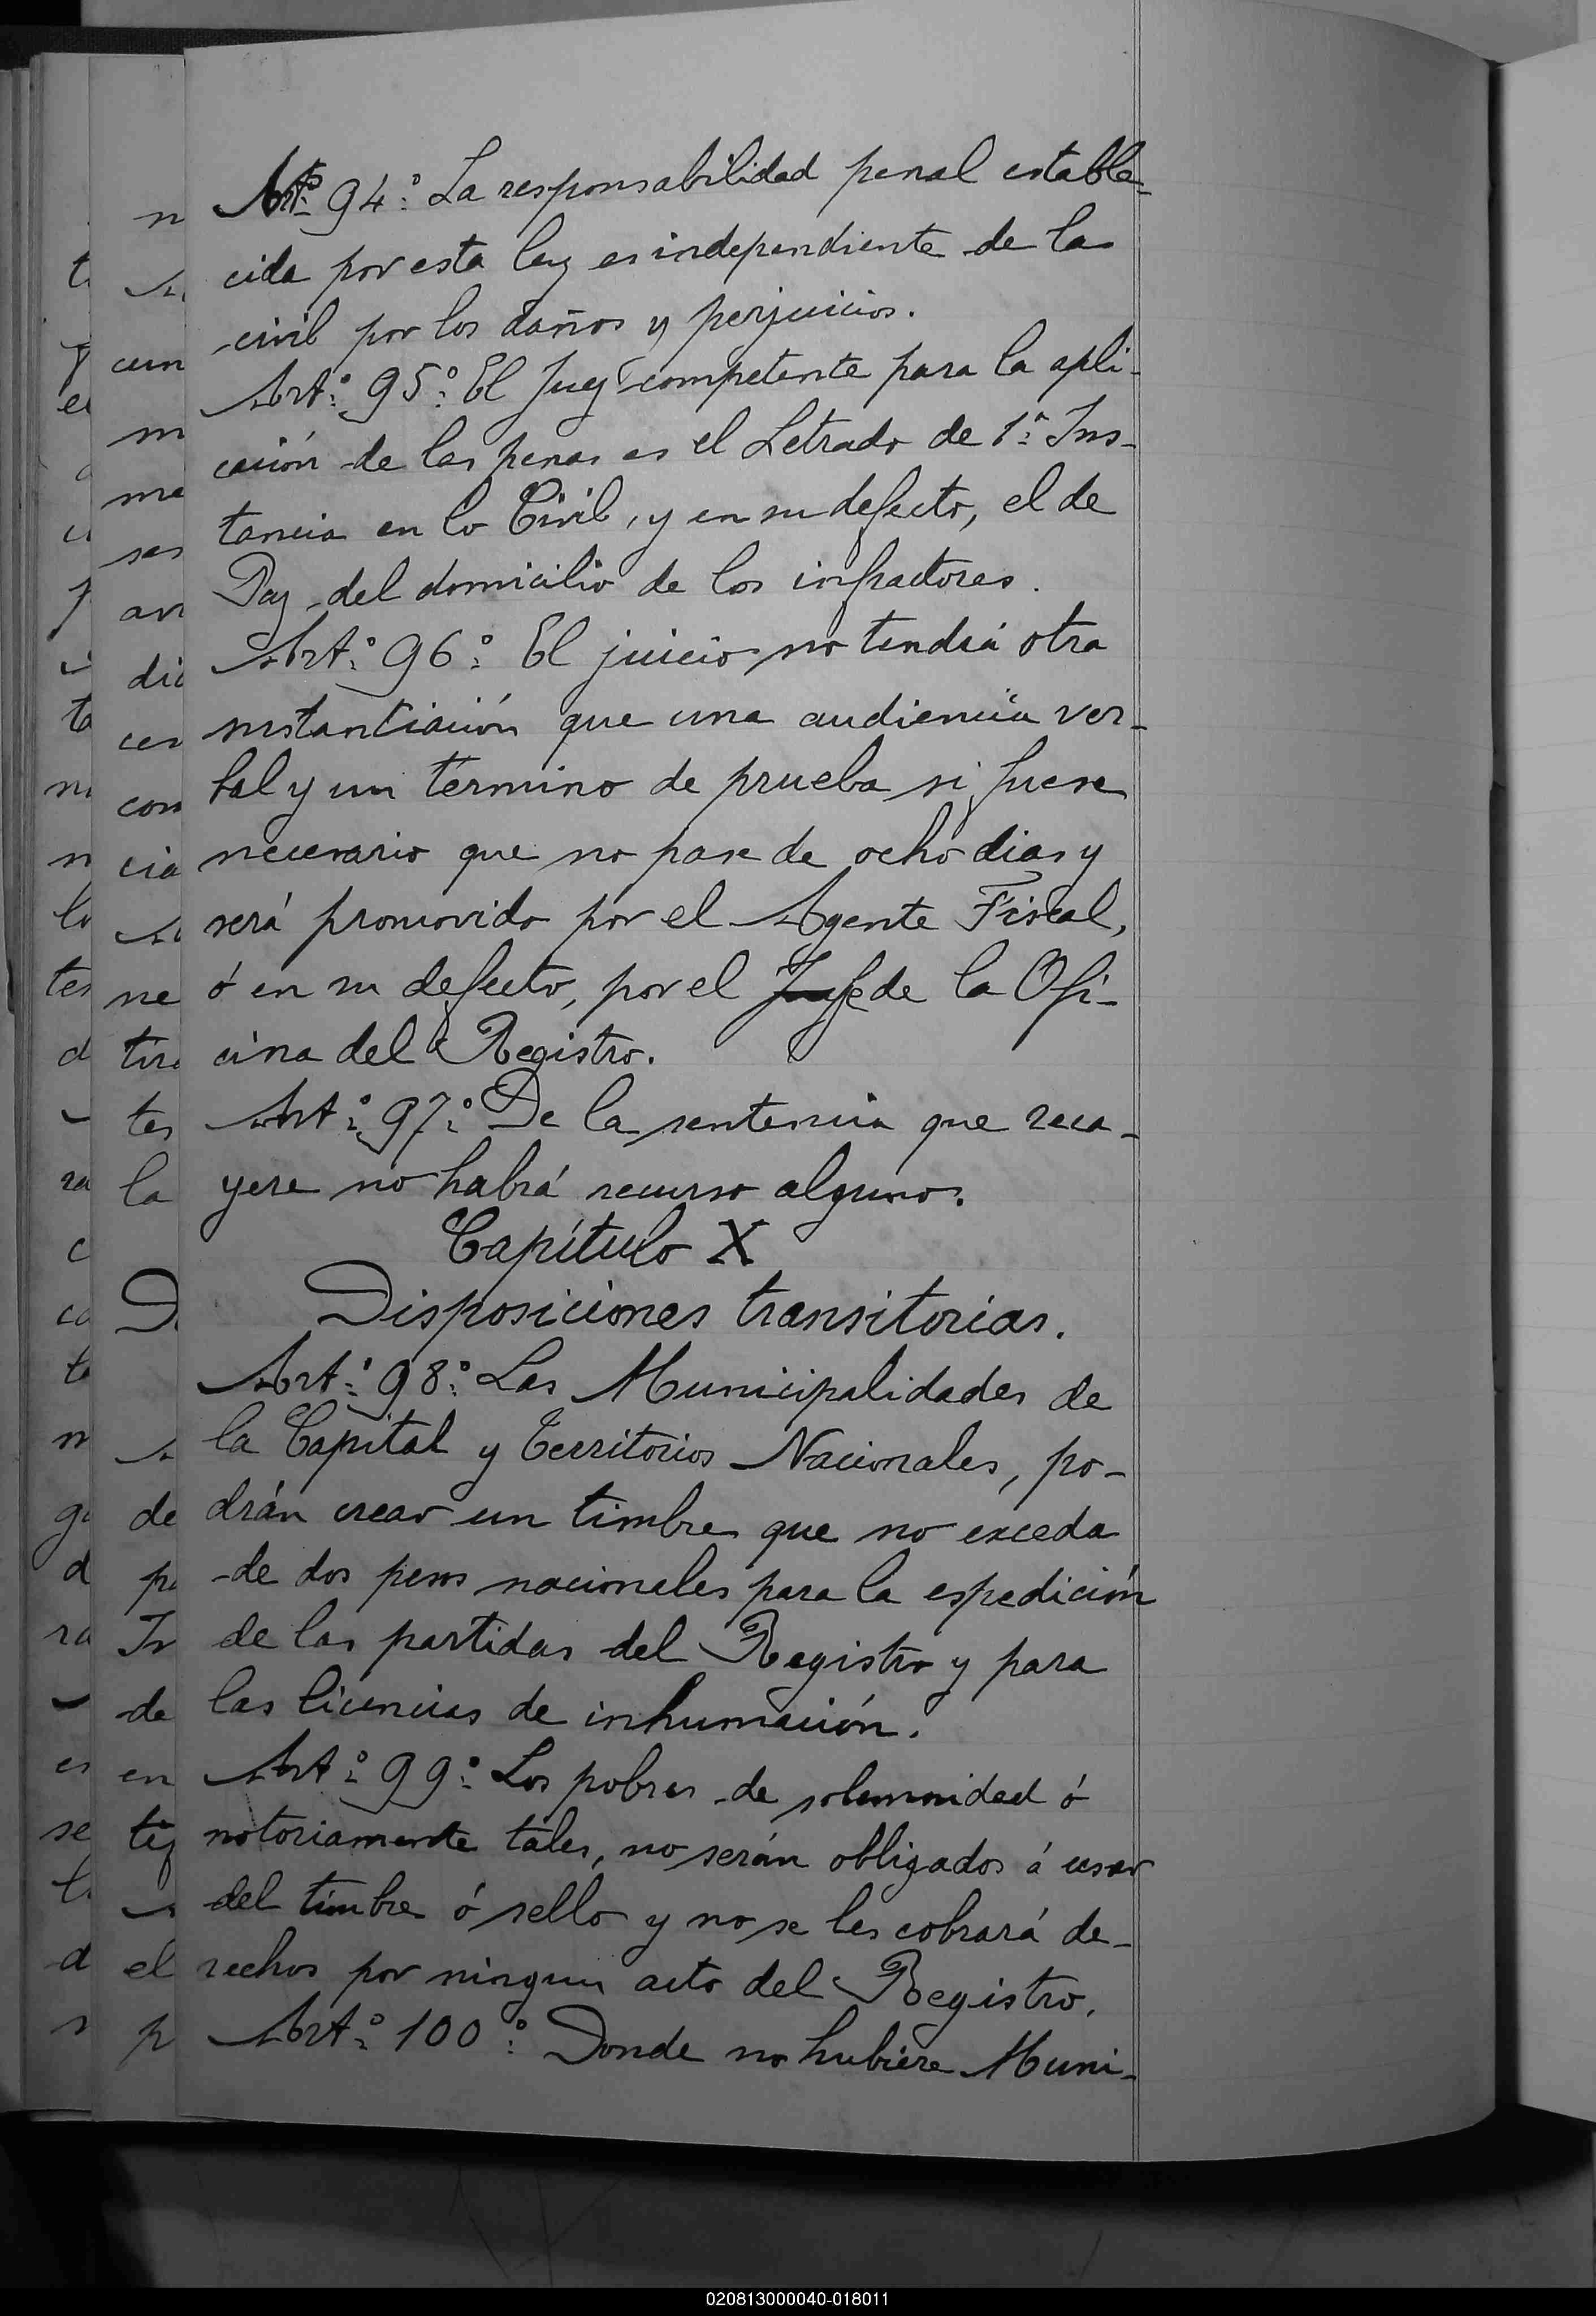 Artº 94º La responsabilidad penal estable-
cida por esta ley es independiente de la
civil por los daños y perjuicios.
Artº 95º El Juez competente para la apli-
cación de las penas es el Letrado de 1ª Ins-
tancia en lo Civil, y en su defecto, el de
Paz del domicilio de los infractores.
Artº 96º El juicio no tendrá otra
sustanciación que una audiencia ver-
bal y un término de prueba si fuese
necesario que no pase de ocho dias y
será promovido por el Agente Fiscal,
ó en su defecto, por el Jefe de la Ofi-
cina del Registro.
Artº 97º De la sentencia que reca-
yere no habrá recurso alguno.
Capítulo X
Disposiciones transitorias.
Artº 98º Las Municipalidades de
la Capital y Territorios Nacionales, po-
drán crear un timbre que no exceda
de dos pesos nacionales para la espedición
de las partidas del Registro y para
las licencias de inhumación.
Artº 99º Los pobres de solemnidad ó
notoriamente tales, no serán obligados á usar
del timbre ó sello y no se les cobrará de-
rechos por ningun acto del Registro.
Artº 100º Donde no hubiere Muni-
020813000040-018011